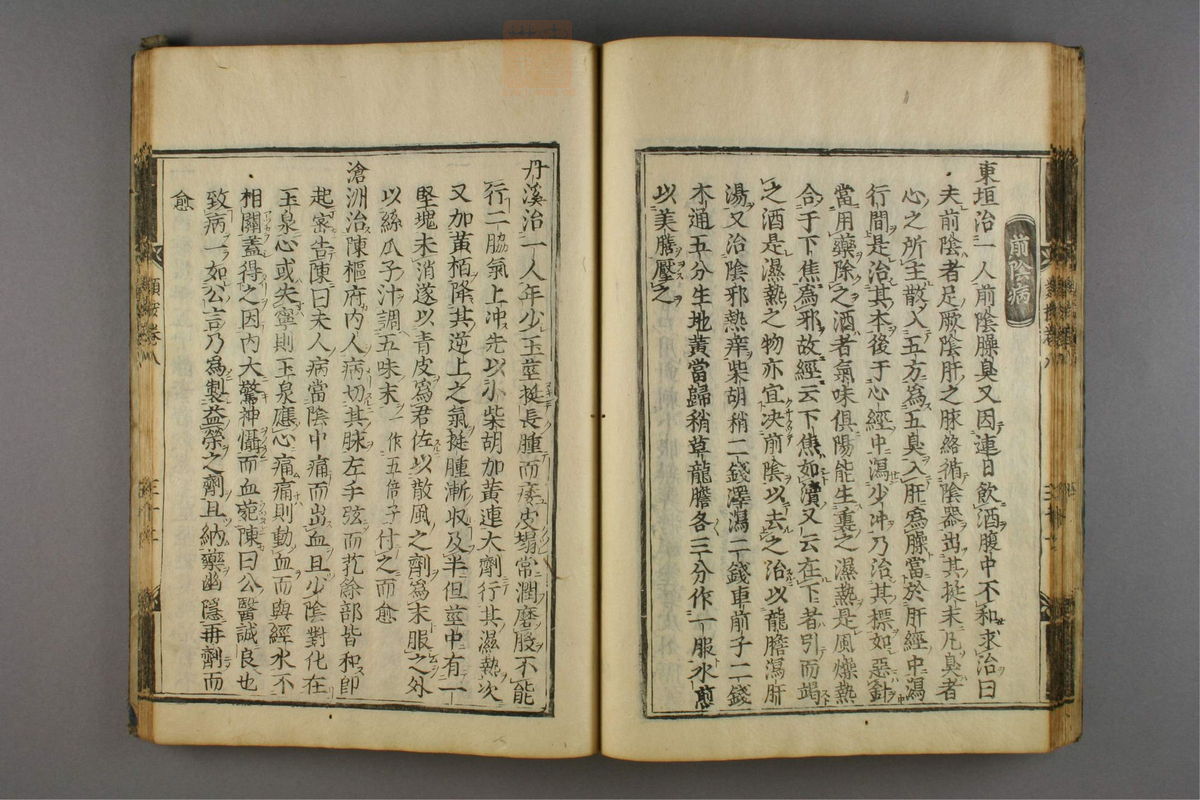 前陰病
東垣治一人前陰臊臭又因連日飲酒腹中不和求治曰
夫前陰者足厥陰肝之脉絡循陰器出其挺末凡臭者
心之所主散入五方爲五臭入肝爲臊當於肝經中瀉
行間是治其本後于心經中瀉少冲乃治其標如惡針
當用藥除之酒者氣味俱陽能生裏之濕熱是風燥熱
合于下焦爲邪故經云下焦如瀆又云在下者引而竭
之酒是濕熱之物亦宜决前陰以去之治以龍膽瀉肝
湯又治陰邪熱痒柴胡稍二錢澤瀉二錢車前子二錢
木通五分生地黃當歸稍草龍膽各三分作一服水煎
以美膳壓之
丹溪治一人年少玉莖挺長腫而痿皮塌常潤磨股不能
行二脇氣上冲先以小柴胡加黃連大劑行其濕熱次
又加黃栢降其逆上之氣挺腫漸収及半但莖中有一
堅塊未消遂以青皮爲君佐以散風之劑爲末服之外
以絲瓜子汁調五味末一作五倍子付之而愈
滄洲治陳樞府内人病切其脉左手弦而芤餘部皆和即
起密告陳曰夫人病當陰中痛而出血且少陰對化在
玉泉心或失寧則玉泉應心痛痛則動血而與經水不
相關蓋得之因内大驚神懾而血菀陳曰公醫誠良也
致病一如公言乃爲製益榮之劑且納藥幽隱再劑而
愈